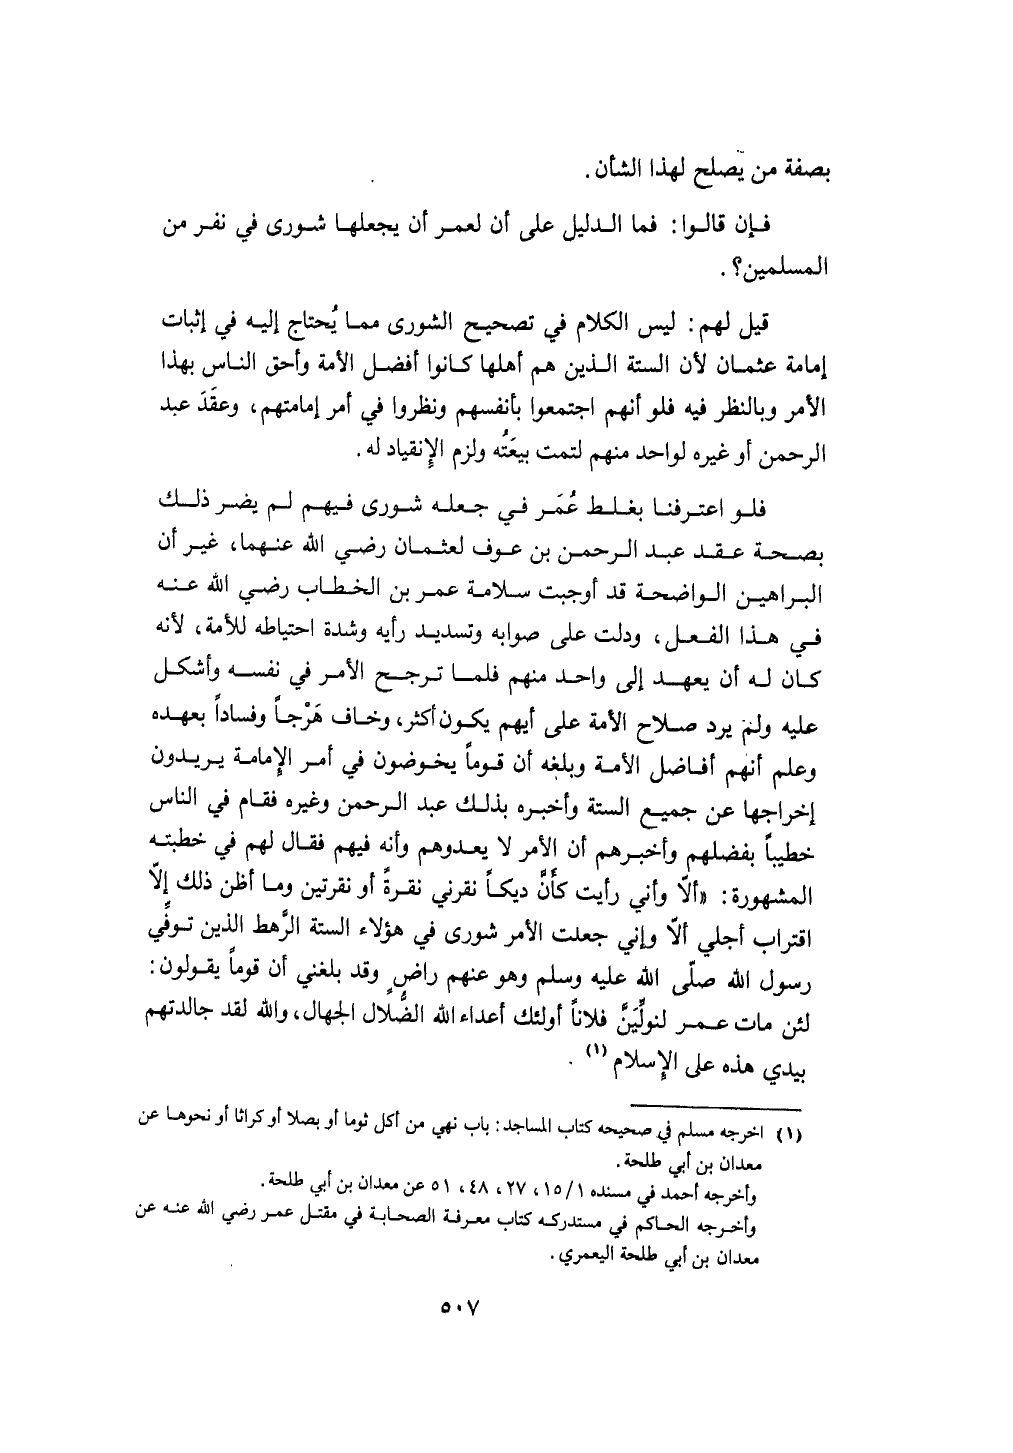 بصفة من يصلح لهذا الشأن .
فإن قالوا : فما الدليل على أن لعمر أن يجعلها شورى في نفر من
المسلمين؟ .
قيل لهم : ليس الكلام في تصحيح الشورى مما يُحتاج إليه في إثبات
إمامة عثمان لأن الستة الذين هم أهلها كانوا أفضل الأمة وأحق الناس بهذا
الأمر وبالنظر فيه فلو أنهم اجتمعوا بأنفسهم ونظروا في أمر إمامتهم ، وعقَدَ عبد
الرحمن أو غيره لواحد منهم لتمت بيعَتُه ولزم الإنقياد له .
فلو اعترفنا بغلط عُمَر في جعله شورى فيهم لم يضر ذلك
بصحة عقد عبد الرحمن بن عوف لعثمان رضي الله عنهما ، غير أن
البراهين الواضحة قد أوجبت سلامة عمر بن الخطاب رضي الله عنه
في هذا الفعل ، ودلت على صوابه وتسديد رأيه وشدة احتياطه للأمة ، لأنه
كان له أن يعهد إلى واحد منهم فلما ترجح الأمر في نفسه وأشكل
عليه ولم يرد صلاح الأمة على أيهم يكون أكثر ، وخاف هَرْجاً وفساداً بعهده
وعلم أنهم أفاضل الأمة وبلغه أن قوماً يخوضون في أمر الإمامة يريدون
إخراجها عن جميع الستة وأخبره بذلك عبد الرحمن وغيره فقام في الناس
خطيباً بفضلهم وأخبرهم أن الأمر لا يعدوهم وأنه فيهم فقال لهم في خطبته
المشهورة : «ألا وأني رأيت كأنَّ ديكاً نقرني نقرةً أو نقرتين وما أظن ذلك إلّا
اقتراب أجلي ألّا وإني جعلت الأمر شورى في هؤلاء الستة الرَّهط الذين توفّي
رسول الله صلّى الله عليه وسلم وهو عنهم راضٍ وقد بلغني أن قوماً يقولون :
لئن مات عمر لنولِّيَنَّ فلاناً أولئك أعداء الله الضُّلال الجهال ، والله لقد جالدتهم
بيدي هذه على الإسلام (١) .
(١) اخرجه مسلم في صحيحه كتاب المساجد : باب نهي من أكل ثوما أو بصلا أو كراثا أو نحوها عن
معدان بن أبي طلحة .
وأخرجه أحمد في مسنده ١٥/١ ، ٢٧ ، ٤٨ ، ٥١ عن معدان بن أبي طلحة .
وأخرجه الحاكم في مستدركه كتاب معرفة الصحابة في مقتل عمر رضي الله عنه عن
معدان بن أبي طلحة اليعمري .
٥٠٧